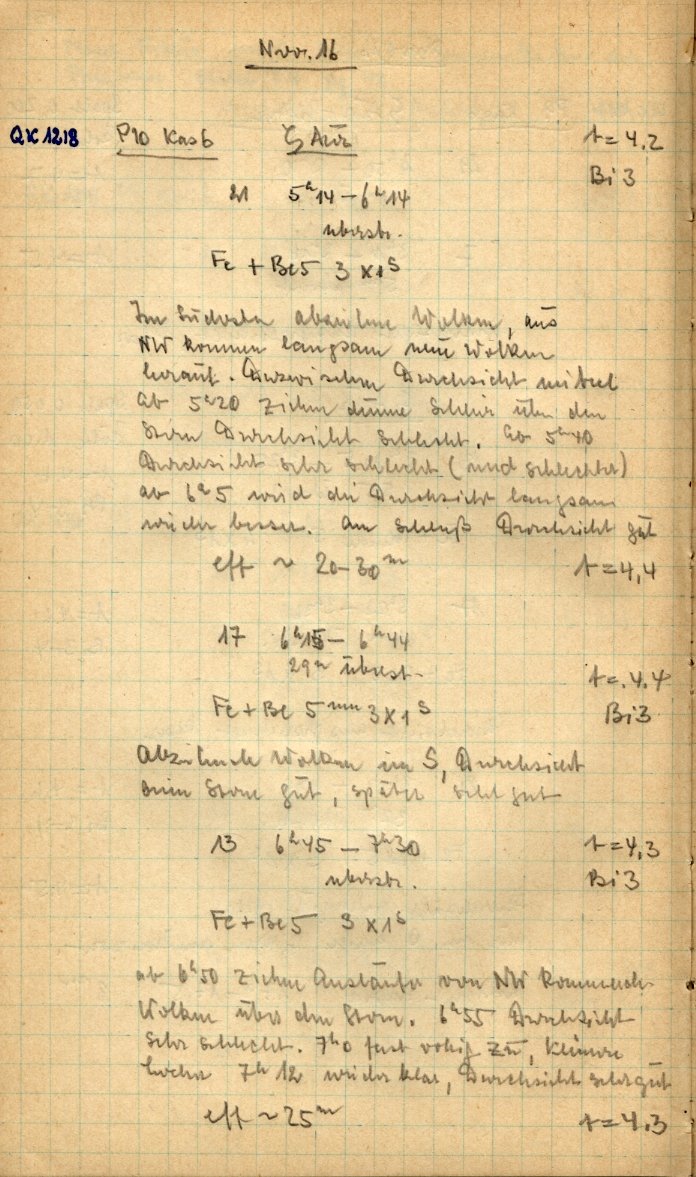 Nov. 16
QK 1218 P10 Kas6 ζ Aur t = 4,2
Bi 3
21 5ʰ14 – 6ʰ14
überstr.
Fe + Be 5 3 x 1ˢ
Im Südosten abziehene Wolken, aus
NW kommen langsam neue Wolken
herauf. Dazwischen Durchsicht mittel
ab 5ʰ20 ziehen dünne Schleier über den
Stern Durchsicht schlecht. ab 5ʰ40
Durchsicht sehr schlecht (und schlechter)
ab 6ʰ5 wird die Durchsicht langsam
wieder besser. Am Schluß Durchsicht gut
eff ~ 20–30ᵐ t = 4,4
17 6ʰ15 – 6ʰ44
29ᵐ überst.
t = 4.4
Fe + Be 5 mm 3 x 1ˢ Bi 3
Abziehende Wolken im S, Durchsicht
beim Stern gut, später sehr gut
13 6ʰ45 – 7ʰ30 t = 4,3
überstr. Bi 3
Fe + Be 5 3 x 1ˢ
ab 6ʰ50 ziehen Ausläufer von NW kommende
Wolken über den Stern. 6ʰ55 Durchsicht
sehr schlecht. 7ʰ0 fast völlig zu, kleinere
Löcher 7ʰ12 wieder klar, Durchsicht sehr gut
eff ~ 25ᵐ t = 4.3